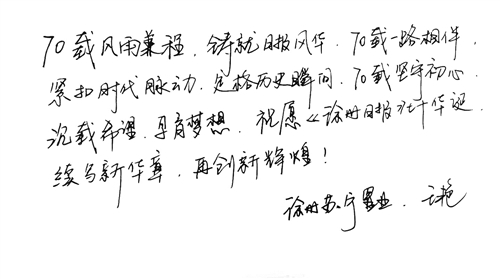 70载风雨兼程，铸就日报风华，70载一路相伴，
紧扣时代脉动，定格历史瞬间，70载坚守初心，
沉载希望，孕育梦想，祝愿《徐州日报》社千华诞，
续写新华章，再创新辉煌！
徐州苏宁置业